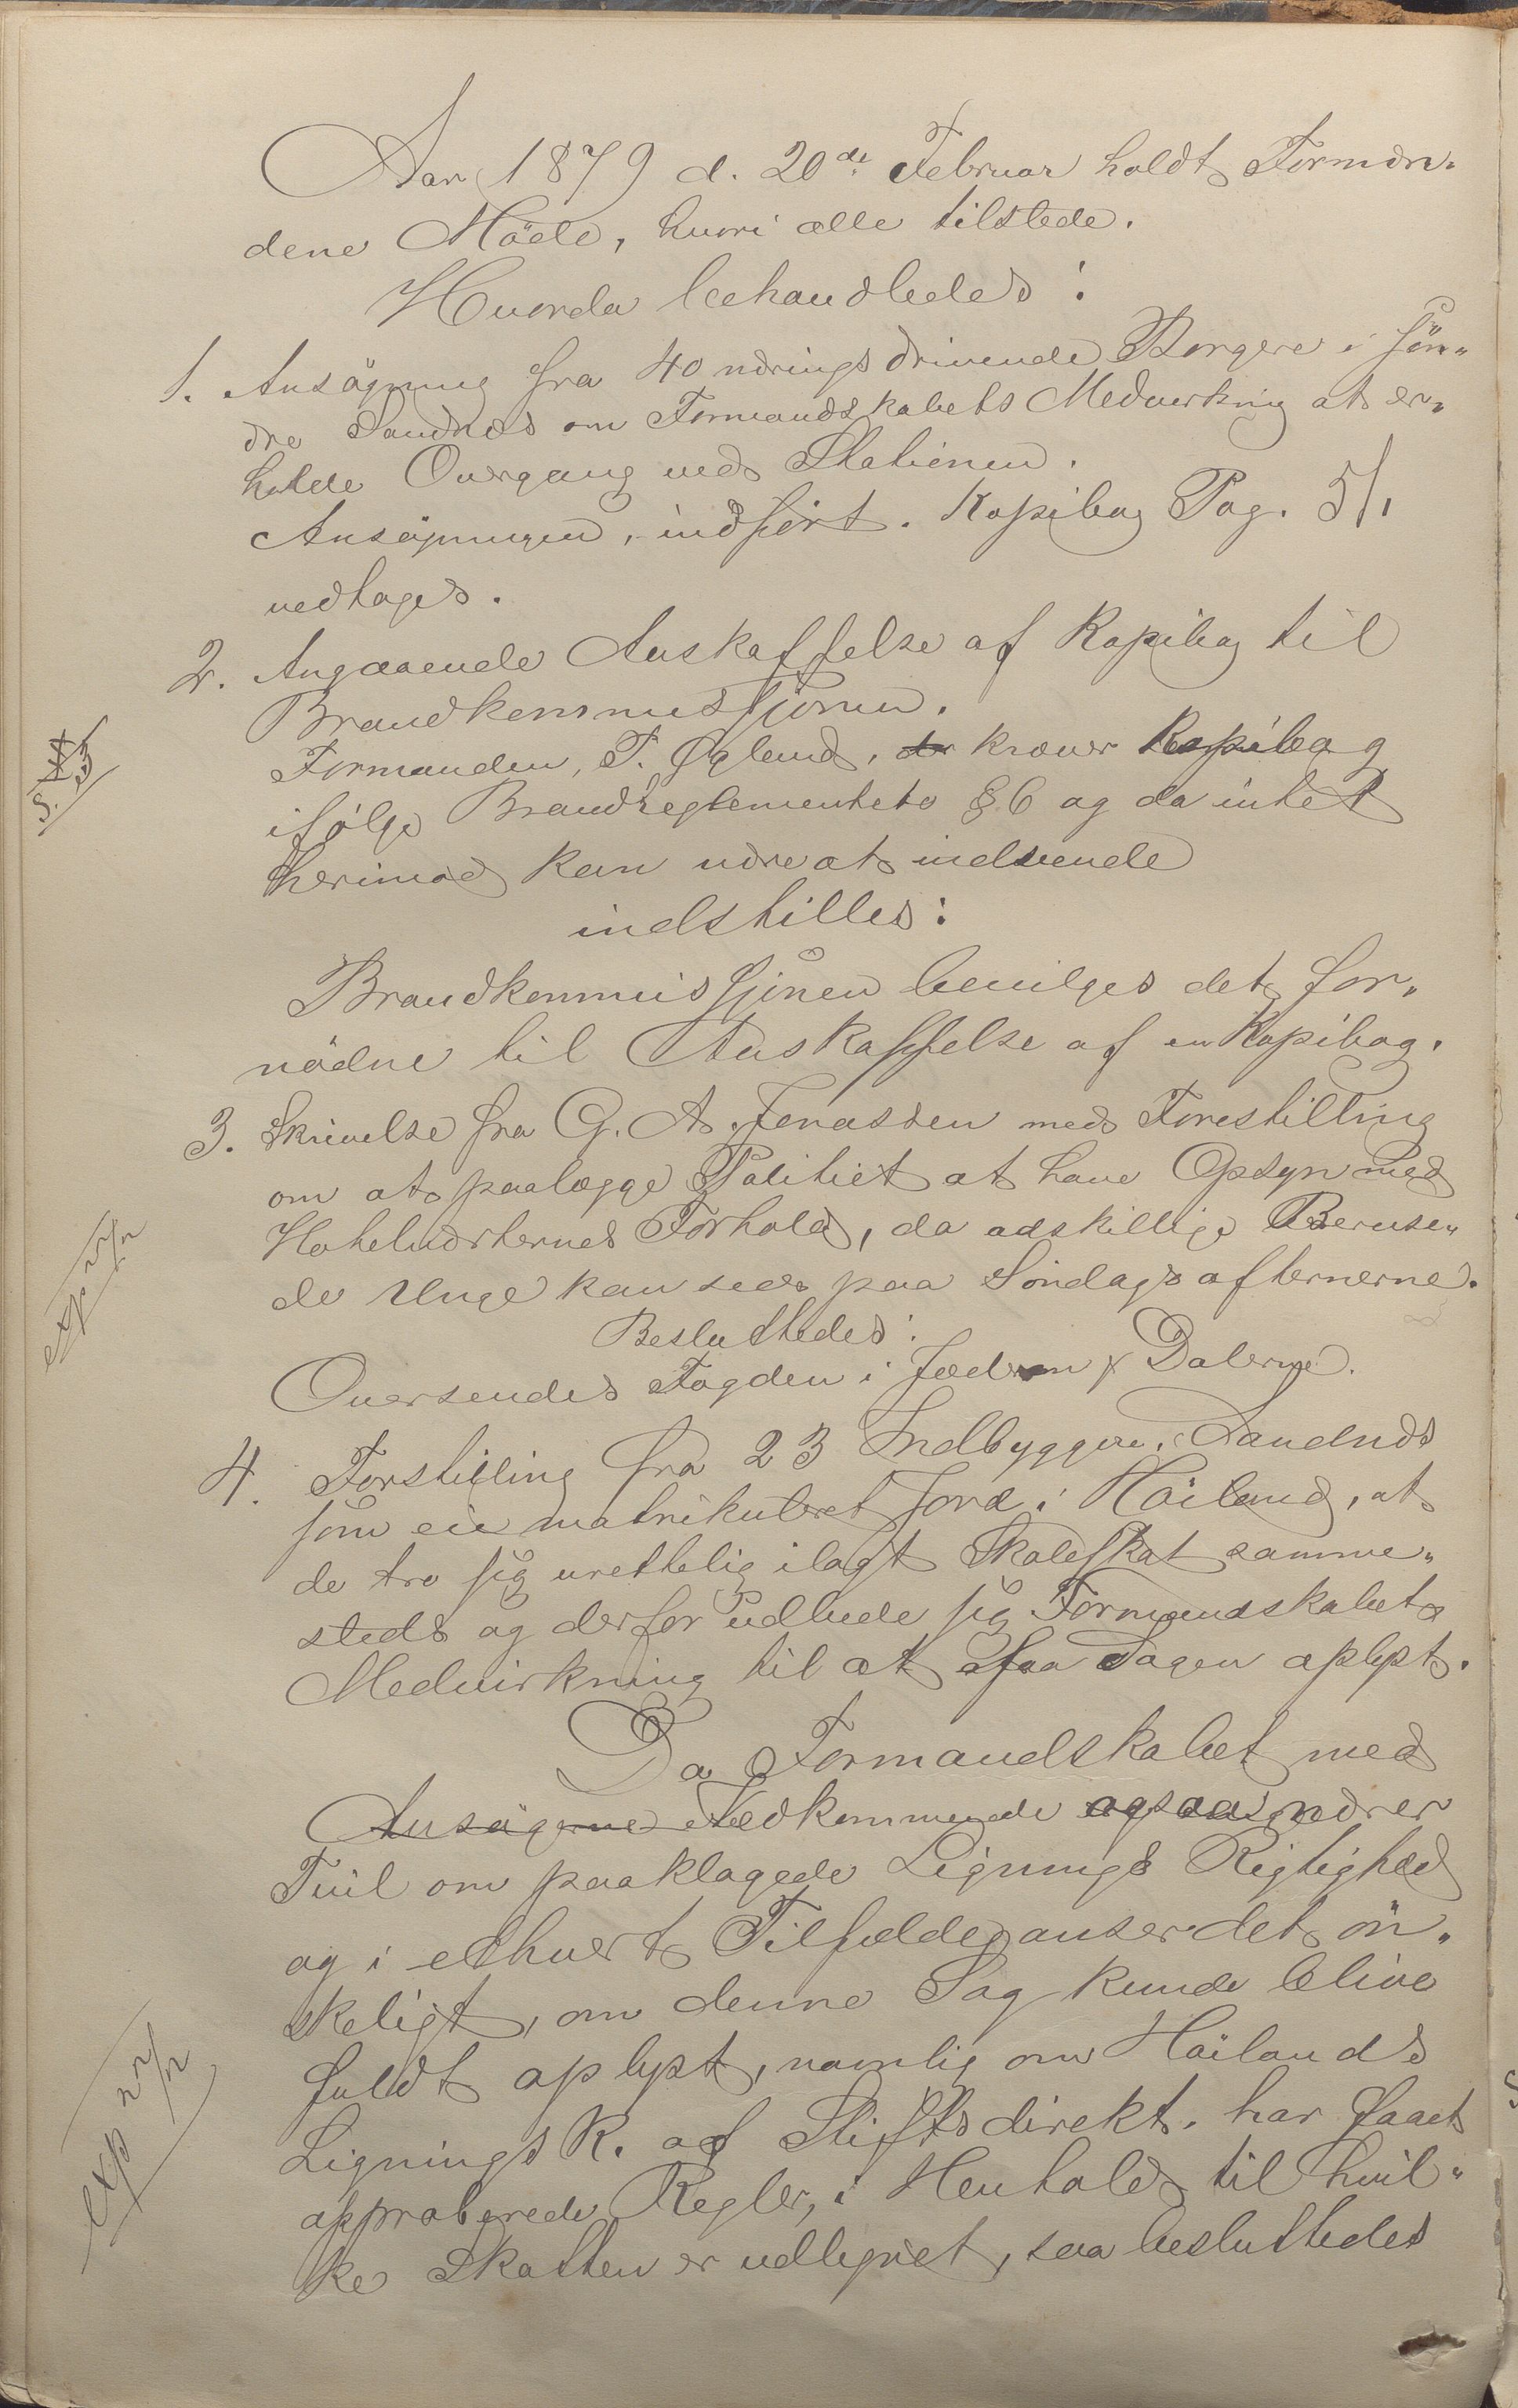 Aar 1879 d. 20de Februar holdt Formæn-
dene Möde, hvori alle tilstede.
Hvorda behandledes:
1. Ansögning fra 40 næringsdrivende Borgere i Sön-
dre Sandnæs om Formandskabets Medvirkning at er-
holde Overgang ved Stationen.
Ansögningen, indfört. Kopibog Pag. 51,
vedtoges.
2. Angaaende Anskaffelse af Kopibog til
Brandkommissjonen.
Formanden, T. Øglend, kræver Kopibog
ifölge Brandreglementets §. 6 og da intet
herimod kan være at indvende
indstilles:
S. 53
Brandkommissjonen bevilges det for-
nödne til Anskaffelse af en Kopibog.
3. Skrivelse fra G. A. Jonassen med Forestilling
om at paalægge Politiet at have Opsyn med
Hotelværternes Forhold, da adskillige Beruse-
de Unge kan sees paa Söndagsafternerne.
exp 22/2
Besluttedes:
Oversendes Fogden i Jæderen & Dalerne.
4. Forstilling fra 23 Indbyggere i Sandnæs
som eie matrikuleret Jord i Höiland, at
de tro sig urettelig ilagt Skoleskat samme-
steds og derfor udbede sig Formandskabets
Medvirkning til at faa Sagen oplyst.
Da Formandskabet med
Ansögerne Vedkommende ogsaa nærer
Tvil om paaklagede Lignings Rigtighed
og i ethvert Tilfælde anser det ön-
skeligt, om denne Sag kunde blive
fuldt oplyst, navnlig om Höilands
LigningsK. af Stiftsdirekt. har faaet
approberede Regler, i Henhold til hvil-
ke Skatten er udlignet, saa besluttedes
exp 22/2